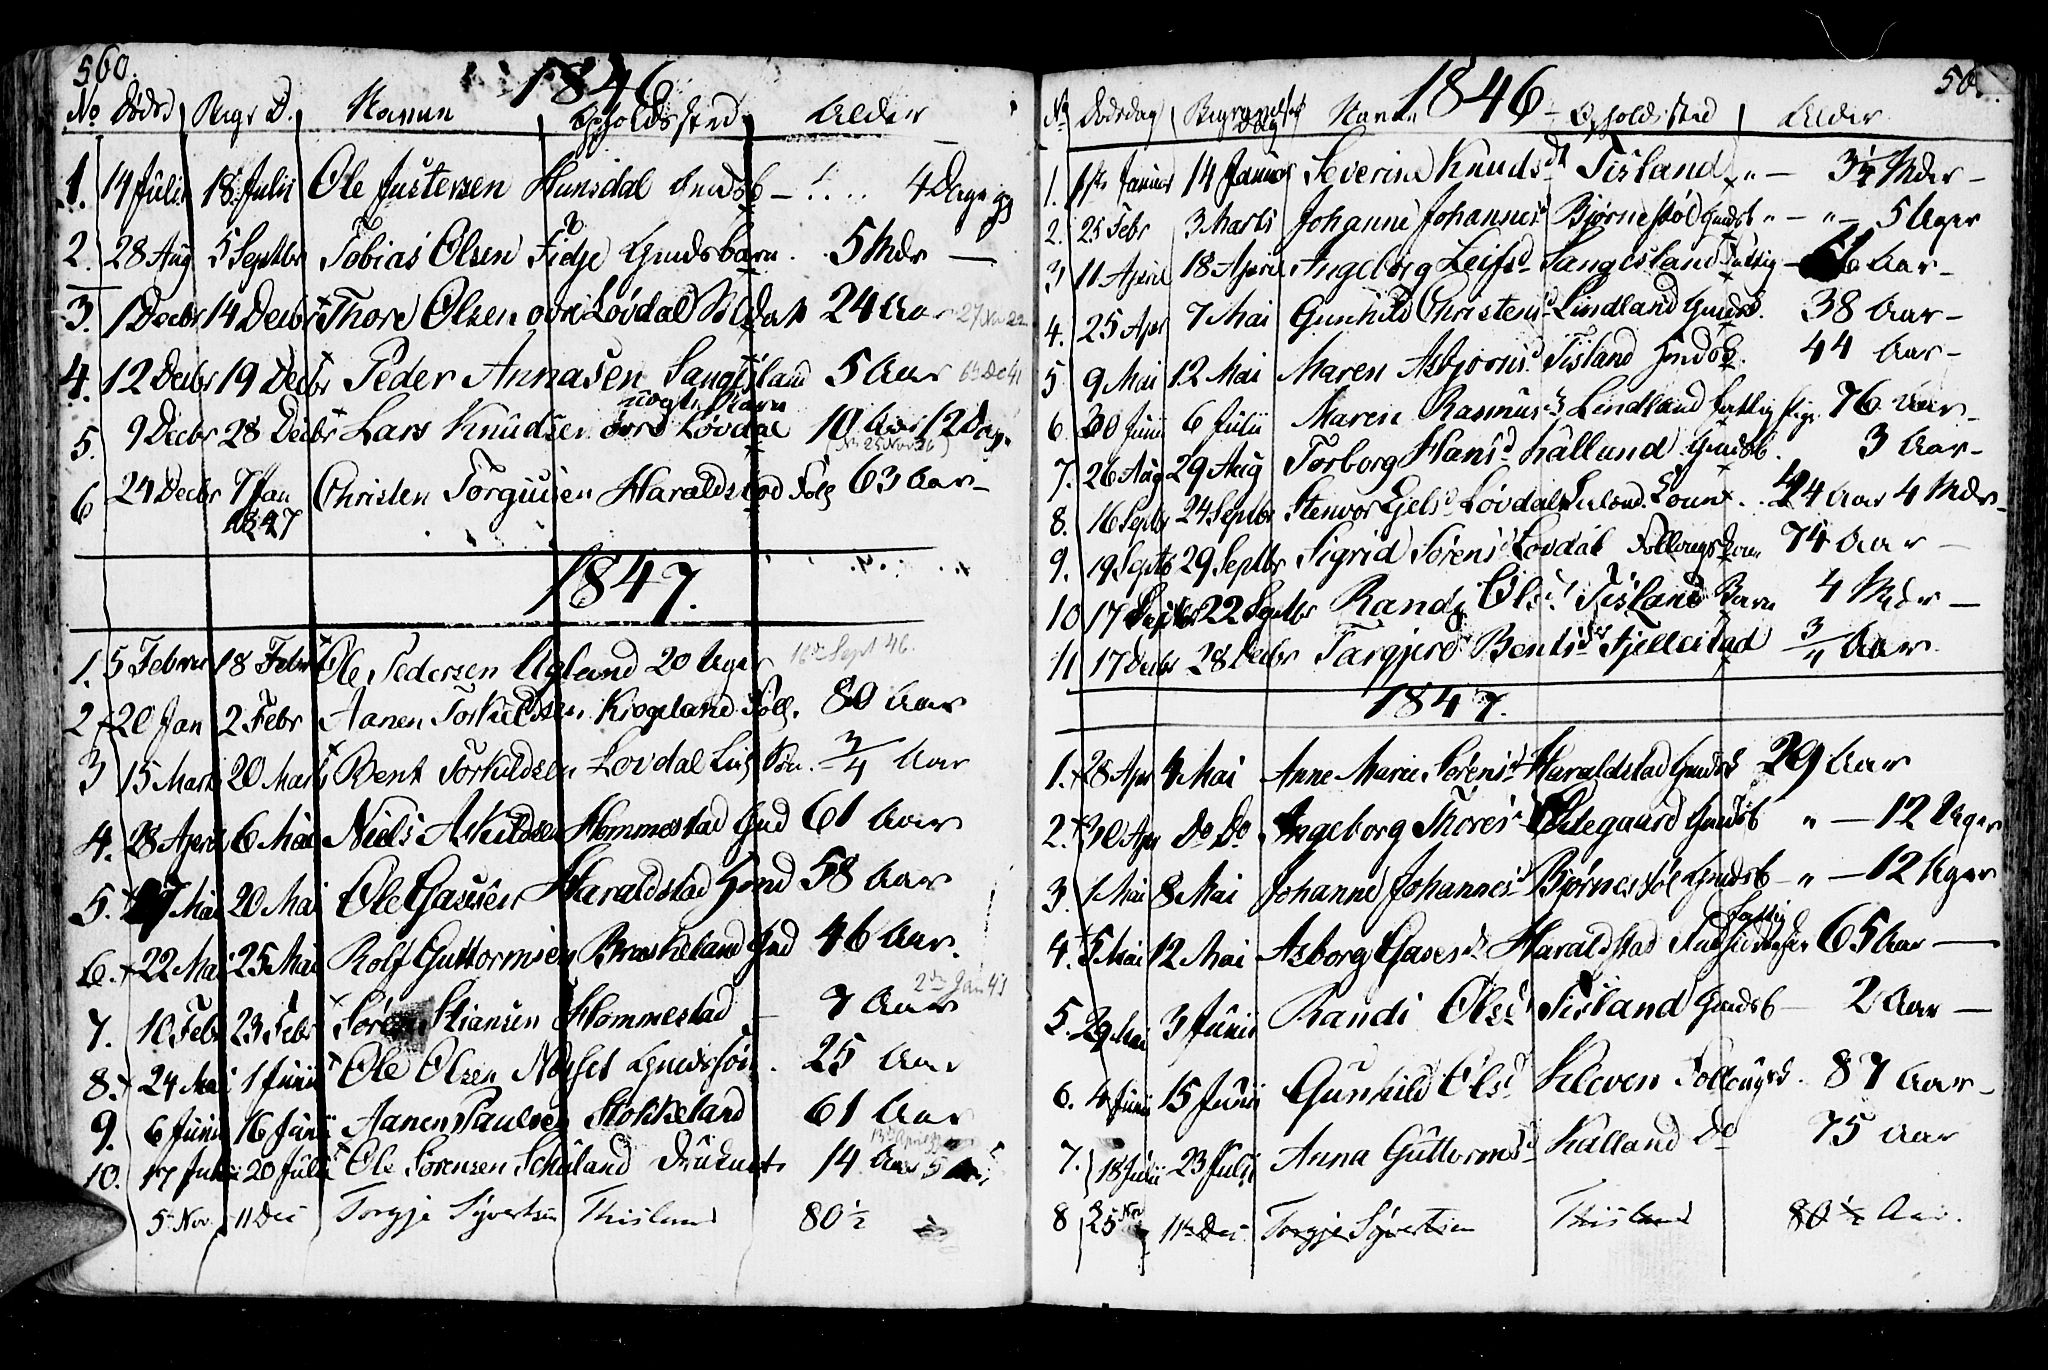 560.
1846
No Døds Begr D. Navnn Opholdssted Alder
1. 14 Julii 18 Julii Ole Justersen Hunsdal - 4 Dage
2. 28 Aug 5 Septbr Tobias Olsen Fidje Gmdsbarn 5 Mdr —
3. 1 Decbr 14 Decbr Thore Olsen Løvdal Soldat 24 Aar
4. 12 Decbr 19 Decbr Peder Annasen Sangesland 5 Aar
uægte Barn
5. 9 Decbr 28 Decbr Lars Knudsen Løvdal 10 Aar 12 Dage
6 24 Decbr 7 Jan Christen Torgusen Haraldstad Folg 63 Aar -
1847
1847.
1. 5 Februar 18 Febr Ole Pedersen Egland 20 Uger 16de Sept 46.
2. 20 Jan 2 Febr Aanen Torkildsen Krogeland Foll. 80 Aar
3 15 Marts 20 Marts Bent Torkildsen Lovdal 3/4 Aar
4. 28 April 6 Mai Niels Askildsen Hommestad Gmd 61 Aar
5. 17 Mai 20 Mai Ole Gasesen Haraldstad Gmd 58 Aar
6. 22 Mai 25 Mai Rolf Guttormsen Braskeland Gmd 46 Aar.
7. 10 Febr 23 Febr Søren Stiansen Hommestad - 7 Aar
8. 24 Mai 1 Junii Ole Olsen Gmdssøn. 25 Aar
9. 6 Junii 16 Junii Aanen Paulsen Stokkeland 61 Aar
10. 17 Julii 20 Julii Ole Sørensen Druknet 14 Aar 5
5 Nov. 11 Dec Torgje Syvertsen Thisland 80 1/2
1846
No Dødsdag Begravelses dag Navn Opholdssted Alder
1. 1ste Januar 14 Januar Severine Knudsdt Tisland " — 3 1/4 Mdr —
2. 25 Febr 3 Marts Johanne Johannes Bjørnestøl Gmdsb " — " — 5 Uger
3 11 April 18 April Angeborg Leifsd Sangesland Aar -
4. 25 Apr 7 Mai Gunhild Christens Lindland Gmds. 38 Aar -
5 9 Mai 12 Mai Maren Asbjørns Tisland Gmds 44 Aar -
6. 30 Junii 6 Julii Maren Rasmus Lindland fattig 76 Aar -
7. 26 Aug 29 Aug Torborg Hansd Kalland Gmdsb. 3 Aar -
8. 16 Septbr 24 Septbr Stenvor Ejelsd Løvdal 4 Mdr -
9. 19 Septb 29 Septbr Sigrid Sørens Lovdal Follougskone 74 Aar —
10 17 Septbr 22 Septbr Randi Olsd Tisland Barn 4 Mdr —
11 17 Decbr 28 Decbr Targjerd Bentsd Fjellestad 3/4 Aar.
1847.
1. 28 Apr 4 Mai Anne Marie Sørensd Haraldstad Gmds 29 Aar
2. 30 Apr Do Do Angeborg Thores Ødegaard Gmdsb " — 12 Uger
3. 1 Mai 8 Mai Johanne Johannes Bjørnestøl Gmdsb - " — 12 Uger
fattig
4. 5 Mai 12 Mai Asborg Gasesd. Haraldstad 65 Aar —
5. 29 Mai 3 Junii Randi Olsd Tisland Gmdsb — 2 Aar —
6. 4 Junii 15 Junii Gunhild Olsd Kleven Follougs. 87 Aar -
7. 18 Julii 23 Julii Anna Guttormsd Kalland Do 75 Aar
8 5 Nov 11te Dec Torgje Syvertsen Thisland 80 1/2 Aar.